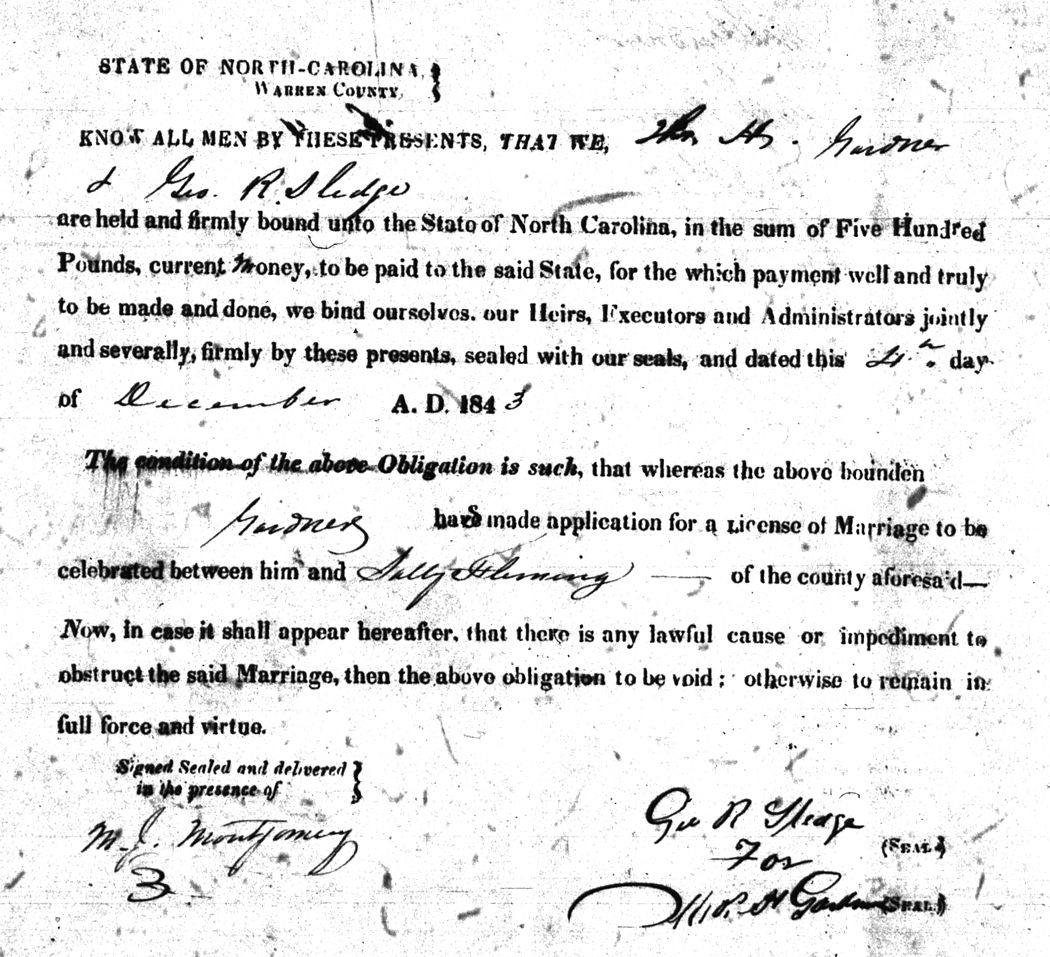 STATE OF NORTH-CAROLINA,
WARREN COUNTY,
KNOW ALL MEN BY THESE PRESENTS, THAT WE, Gardner
& Geo. R. Sledge
are held and firmly bound unto the State of North Carolina, in the sum of Five Hundred
Pounds, current money, to be paid to the said State, for the which payment well and truly
to be made and done, we bind ourselves. our Heirs, Executors and Administrators jointly
and severally, firmly by these presents, sealed with our seals, and dated this day
of December A. D. 1843
The condition of the above Obligation is such, that whereas the above bounden
Gardner has made application for a License of Marriage to be
celebrated between him and Sally Fleming — of the county aforesa'd—
Now, in case it shall appear hereafter, that there is any lawful cause or impediment to
obstruct the said Marriage, then the above obligation to be void; otherwise to remain in
full force and virtue.
Signed Sealed and delivered
in the presence of
M. J. Montgomery
3
Geo R Sledge (SEAL)
For
H Gardner (SEAL)